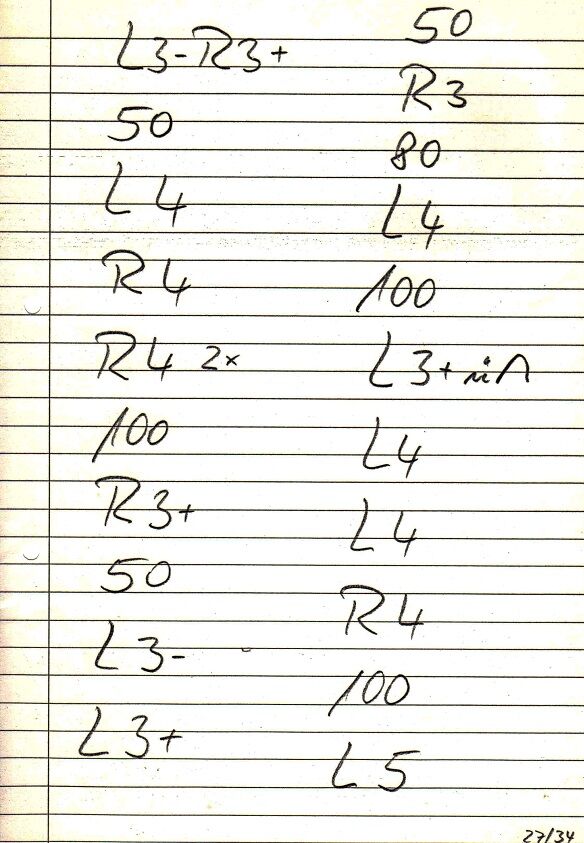 L3-R3+
50
L4
R4
R4 2x
100
R3+
50
L3-
L3+
50
R3
80
L4
100
L3+ ü∩
L4
L4
R4
100
L5
27/34